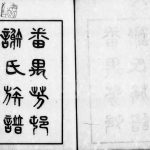 番禺芳村
謝氏族譜